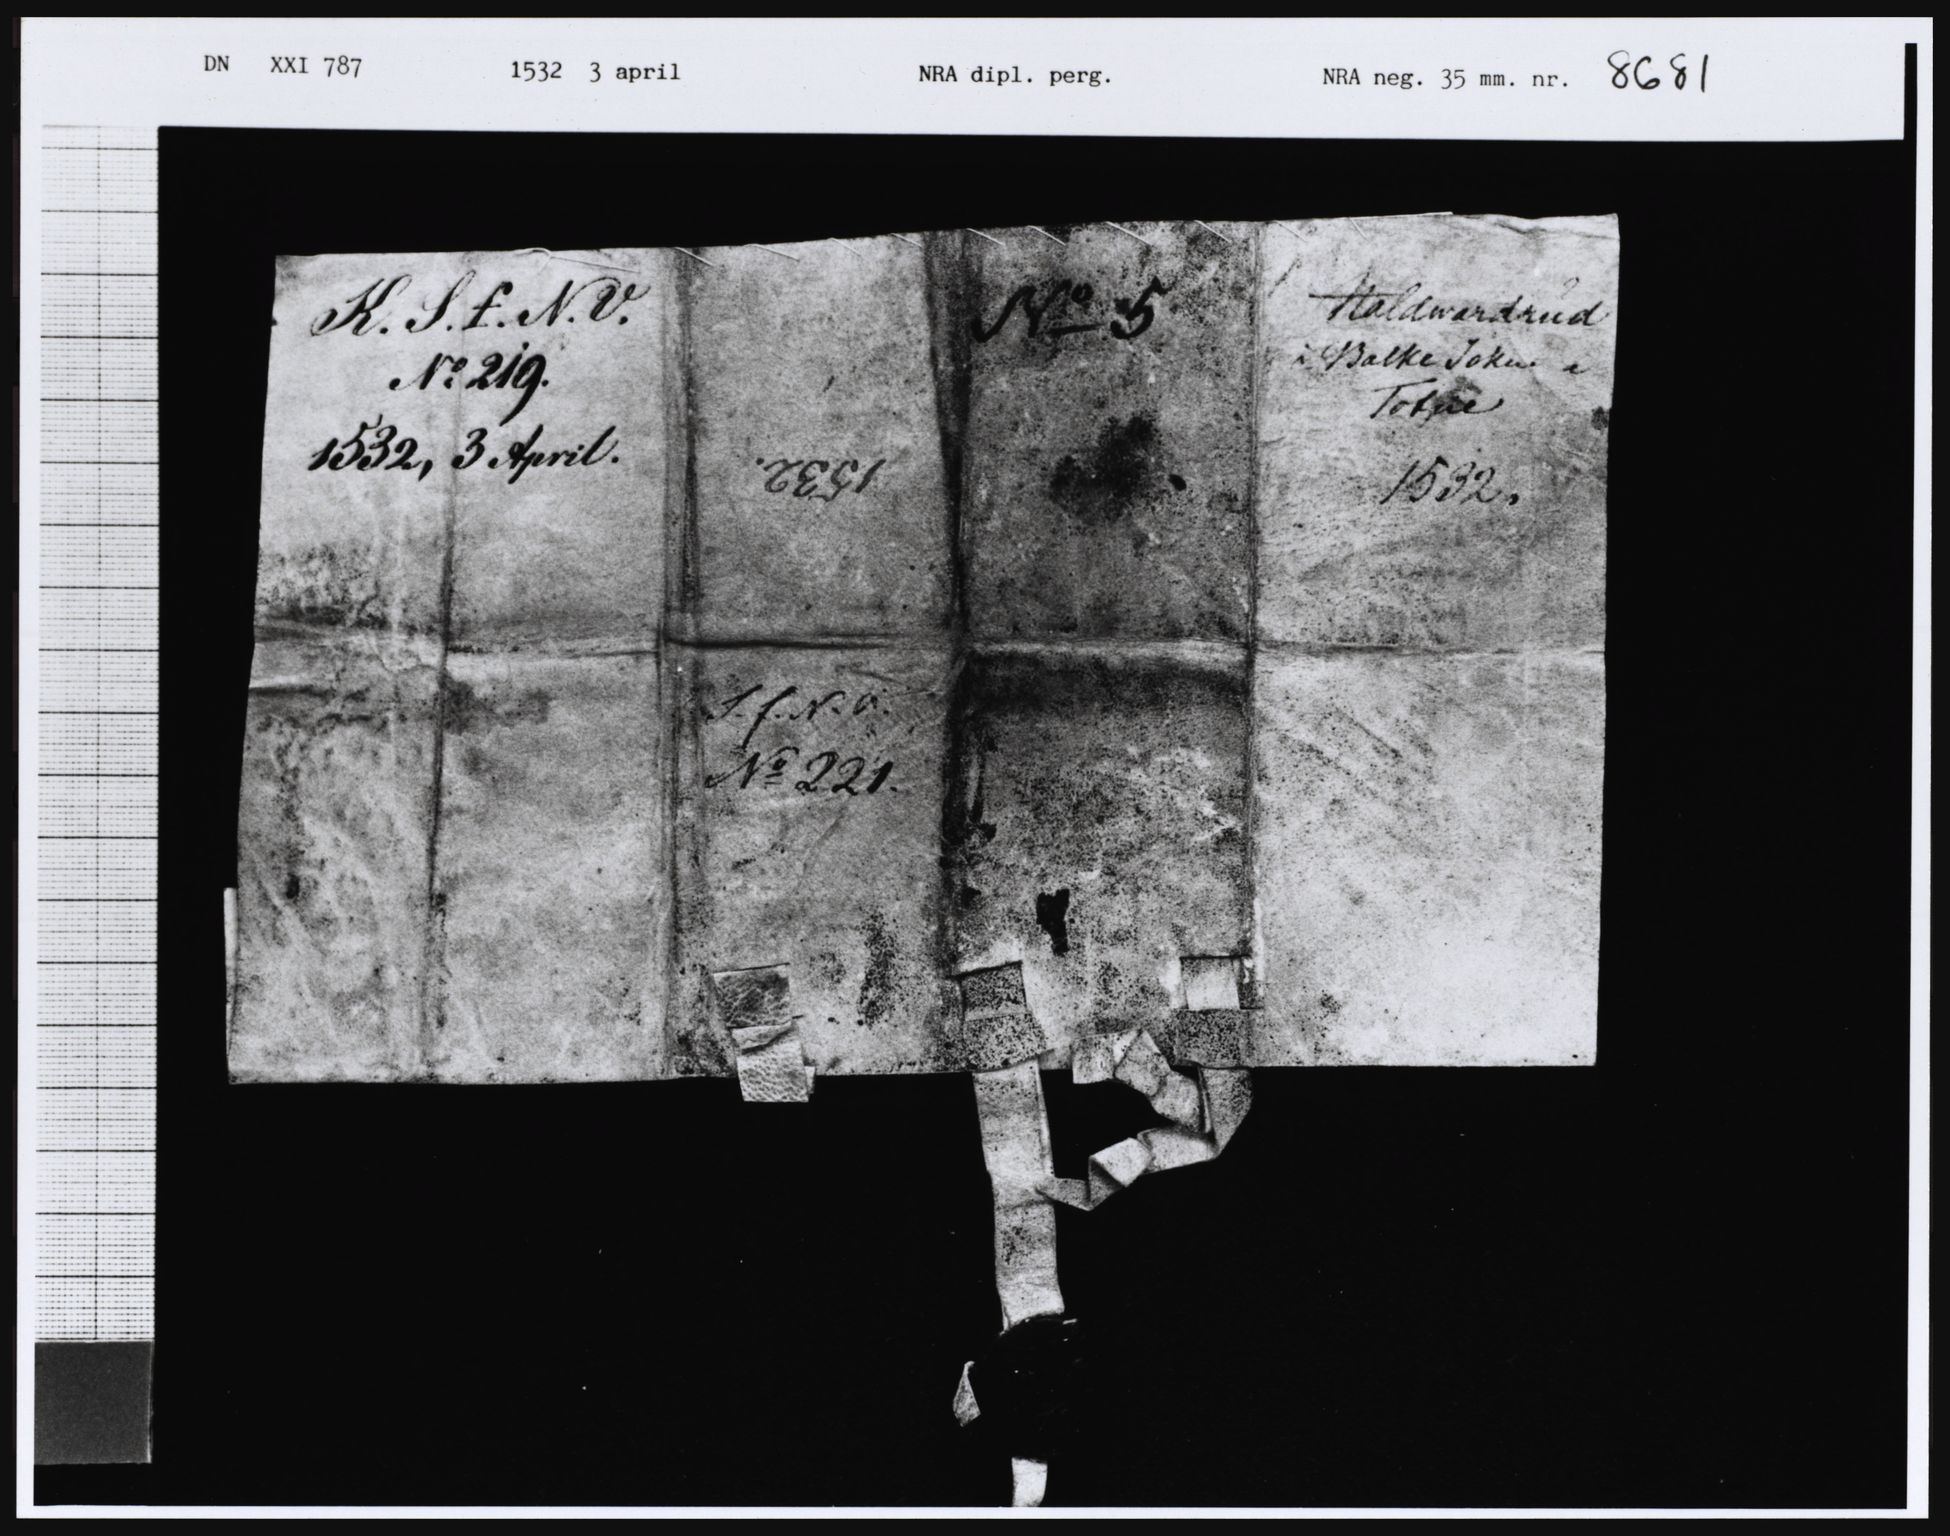 DN XXI 787 1532 3 april NRA dipl. perg. NRA neg. 35 mm. nr. 8681
K. S. f. N. V.
No 219.
1532, 3 April.
1532.
No 5
Haldwardrud
i Balke Sokn i
Totne
1532,
S. f. N. V.
No 221.